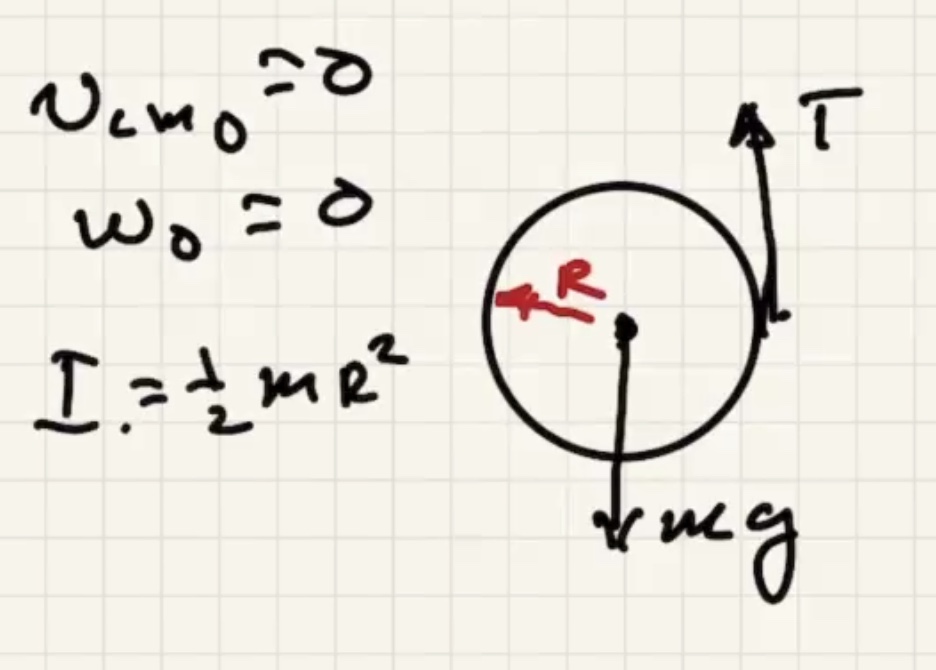 v_cm₀ = 0
ω₀ = 0
I = 1/2 mR²
T
R
mg